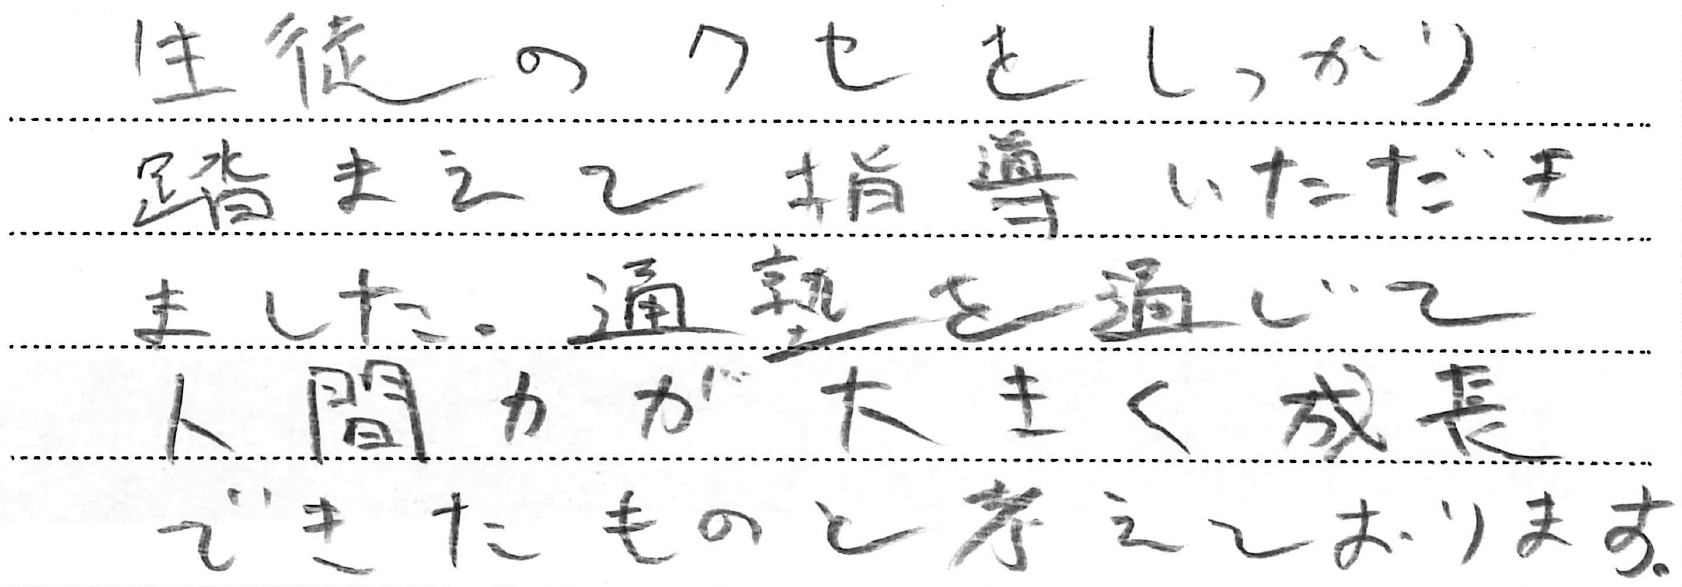 生徒のクセをしっかり
踏まえて指導いただき
ました。通塾を通じて
人間力が大きく成長
できたものと考えております。